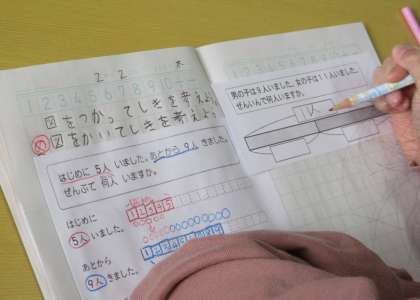 2 2 木
1 2 3 4 5 6 7 8 9 10
図をつかってしきを考えよう。
め 図をかいてしきを考えよう。
はじめに 5人 いました。あとから 9人 きました。
ぜんぶで 何人 いますか。
はじめに
5人 いました。
1 2 3 4 5
あとから
9人 きました。
男の子は9人いました。女の子は11人いました。
ぜんいんで何人いますか。